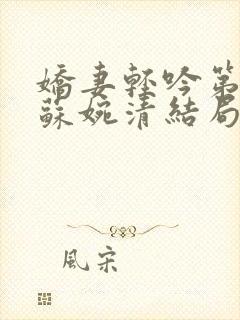 嬌妻輕吟第
蘇婉清結局
風宋